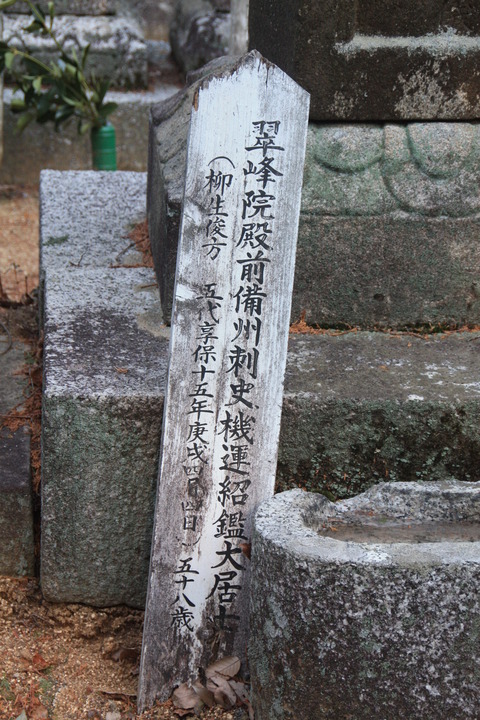 翠峰院殿前備州刺史機運紹鑑大居士
（柳生俊方 五代享保十五年庚戌四月四日 五十八歳